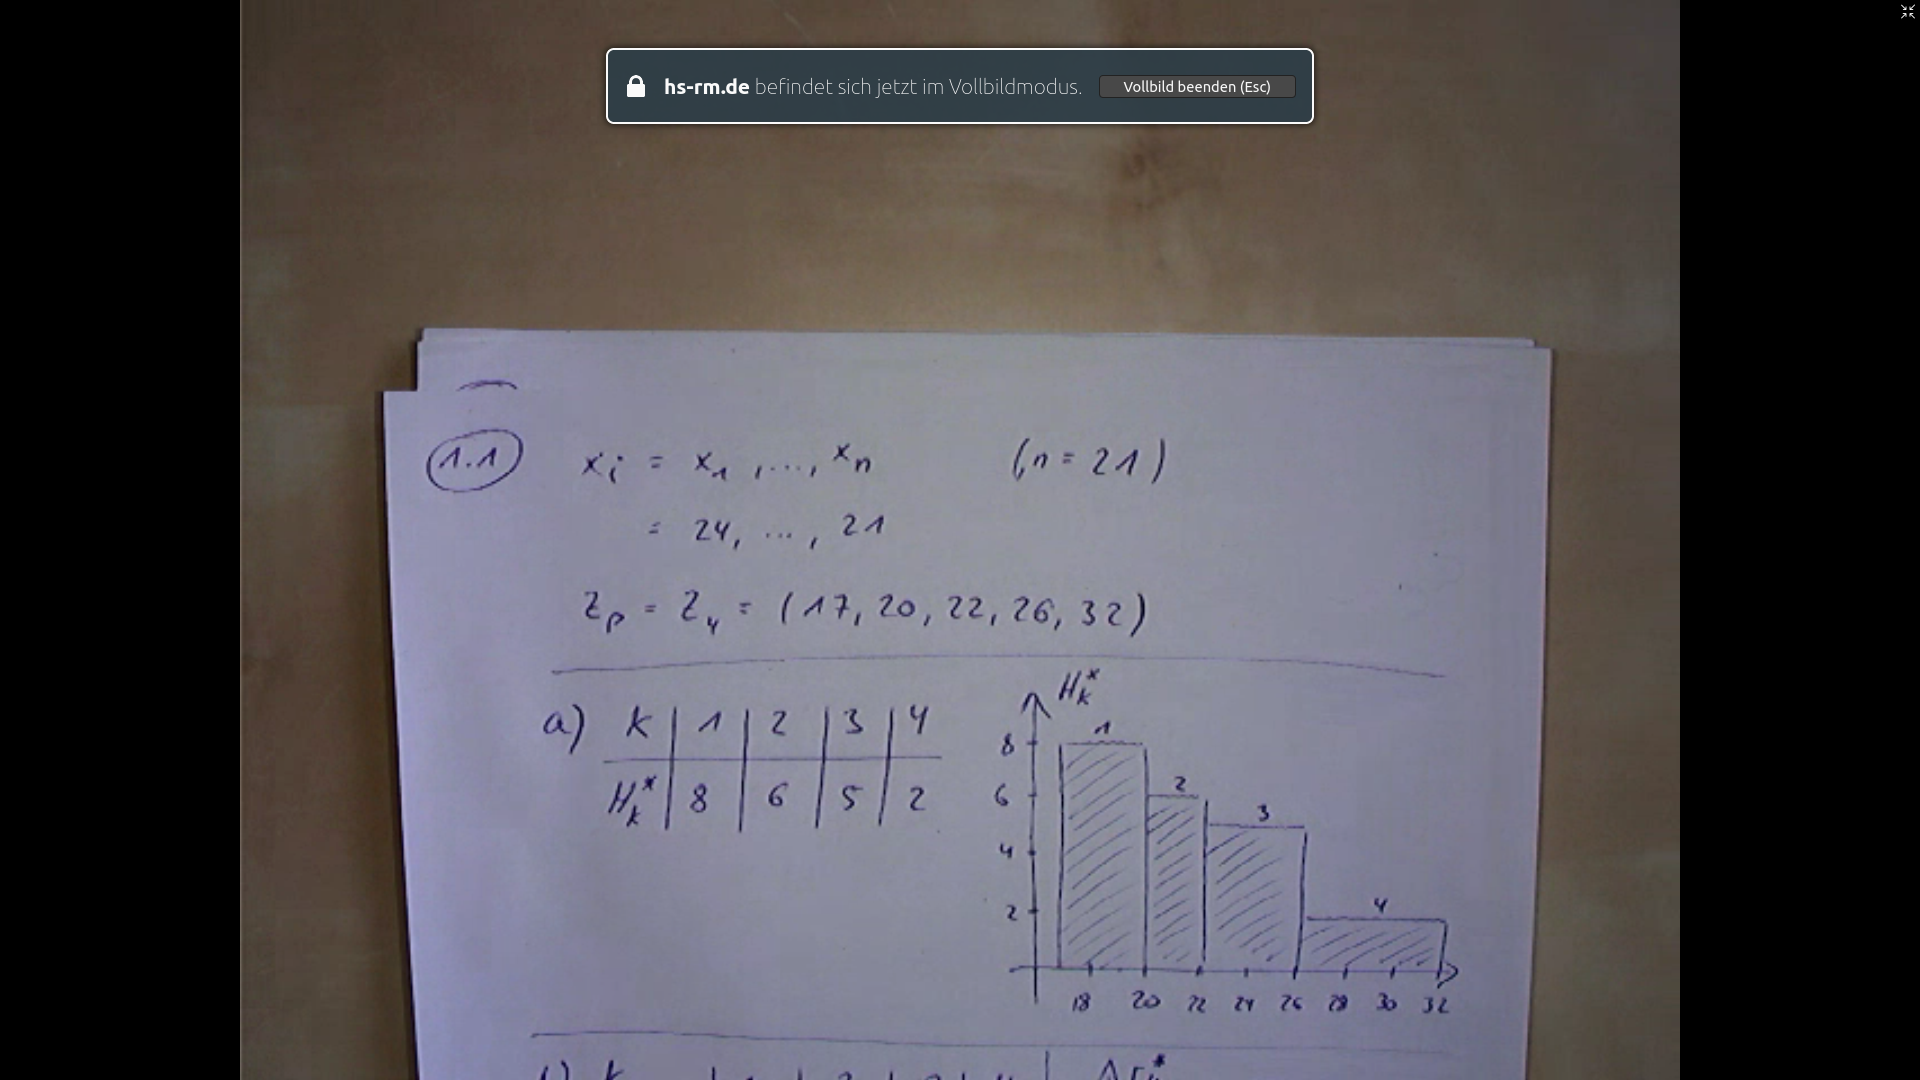 hs-rm.de befindet sich jetzt im Vollbildmodus. Vollbild beenden (Esc)
1.1 xi = x1, ..., xn (n = 21)
= 24, ..., 21
Zp = Z4 = (17, 20, 22, 26, 32)
a) k | 1 | 2 | 3 | 4
Hk* | 8 | 6 | 5 | 2
Hk*
8
6
4
2
1
2
3
4
18 20 22 24 26 28 30 32